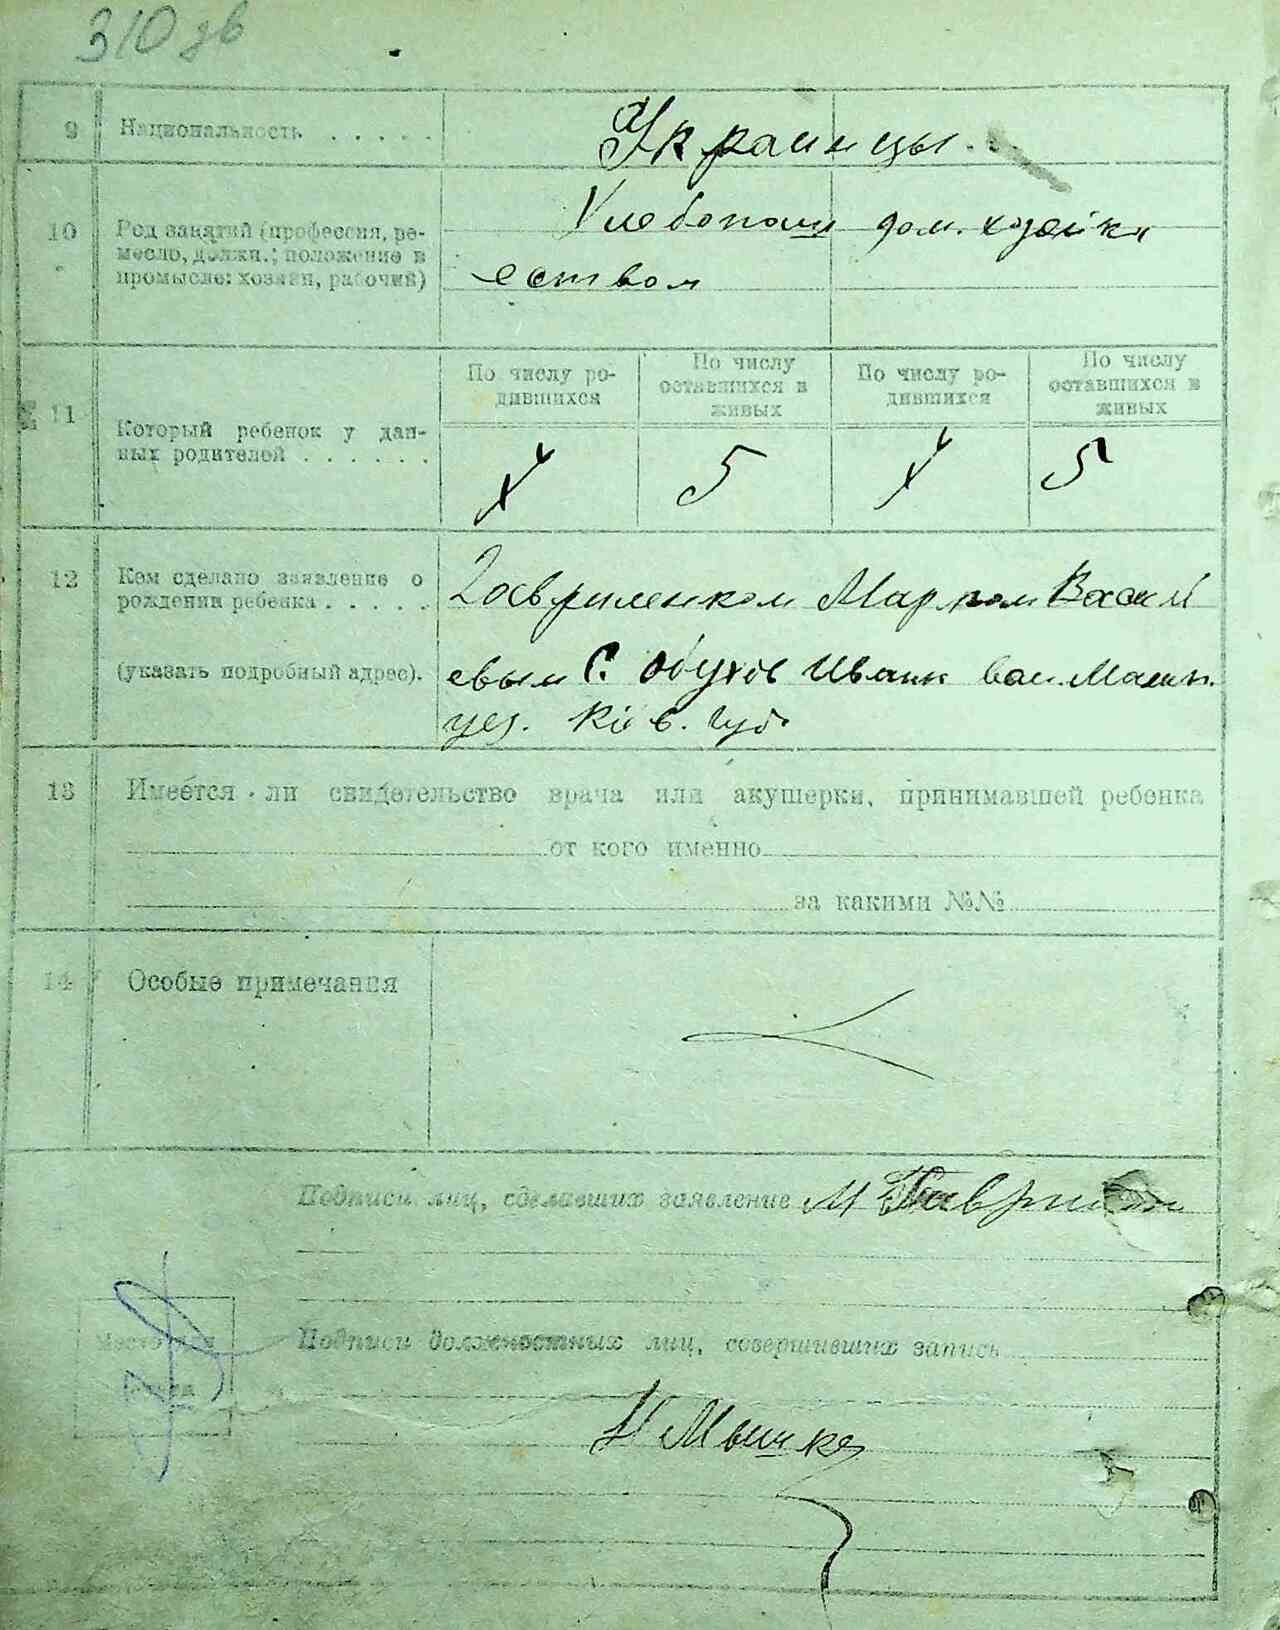 310 зв
9 Национальность . . . . . Украинцы.
10 Род занятий (профессия, ре-
месло, должн.; положение в
промысле: хозяин, рабочий)
Хлебопаш дом. хозяйка
еством
11 Который ребенок у дан-
ных родителей . . . . . .
По числу ро-
дившихся
По числу
оставшихся в
живых
По числу ро-
дившихся
По числу
оставшихся в
живых
5 5
12 Кем сделано заявление о
рождении ребенка . . . . .
(указать подробный адрес).
Гавриленком Марком Васил
евым С. Обухов
уез. Киев. губ.
13 Имеется ли свидетельство врача или акушерки, принимавшей ребенка
от кого именно
за какими №№
14 Особые примечания
Подписи лиц, сделавших заявление М Гаврилен
Место для
Подписи должностных лиц, совершивших запись